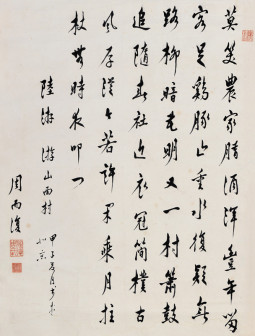 莫笑農家臘酒渾豐年留
客足鷄豚山重水復疑無
路柳暗花明又一村簫鼓
追隨春社近衣冠簡樸古
風存從今若許閑乘月拄
杖無時夜叩門
陸游 游山西村
甲子夏月
周而復